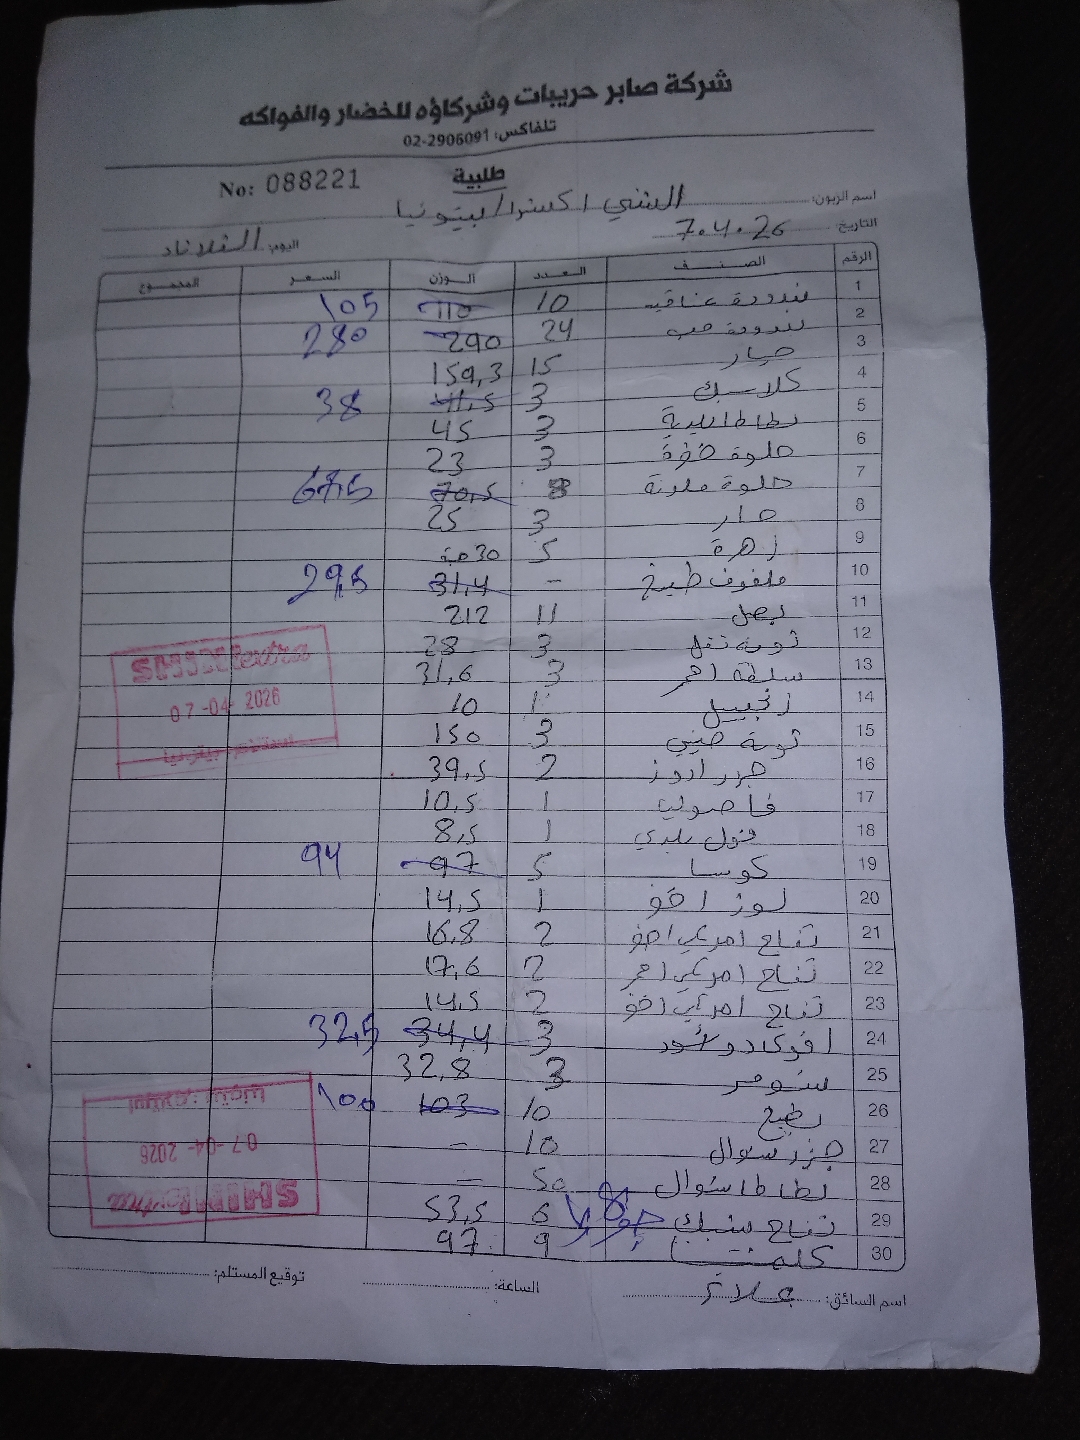 شركة صابر حريبات وشركاؤه للخضار والفواكه
تلفاكس: 02-2906091
طلبية
No: 088221
اسم الزبون: الشني اكسترا / بيتونيا
التاريخ 7.4.26
اليوم: الثلاثاء
الرقم الصنف العدد الوزن السعر المجموع
1 بندورة عناقيد 10 110 105
2 بندورة حب 24 290 280
3 خيار 15 159,3
4 كلاسيك 3 41,5 38
5 بطاطا بلدية 3 45
6 حلوة خضرة 3 23
7 حلوة ملونة 8 70,5 67,5
8 حار 3 25
9 زهرة 5 30 حبة
10 ملفوف طبيخ - 31,4 29,5
11 بصل 11 212
12 ثومة تفل 3 28
13 سلطة احمر 3 31,6
14 زنجبيل 1 10
15 ثومة صيني 3 150
16 جزر اروز 2 39,5
17 فاصوليا 1 10,5
18 فول بلدي 1 8,5
19 كوسا 5 97 94
20 لوز اخضر 1 14,5
21 تفاح امريكي اخضر 2 16,8
22 تفاح امريكي احمر 2 17,6
23 تفاح امريكي اخضر 2 14,5
24 افوكادو اسود 3 34,4 32,5
25 شومر 3 32,8
26 بطيخ 10 103 100
27 جزر شوال 10 -
28 بطاطا شوال 50 -
29 تفاح سبيك 6 53,5
30 كلمنتينا 9 97
SHINI extra
07-04-2026
استلام بيتونيا
SHINI extra
07-04-2026
استلام بيتونيا
اسم السائق: علاء
الساعة:
توقيع المستلم: